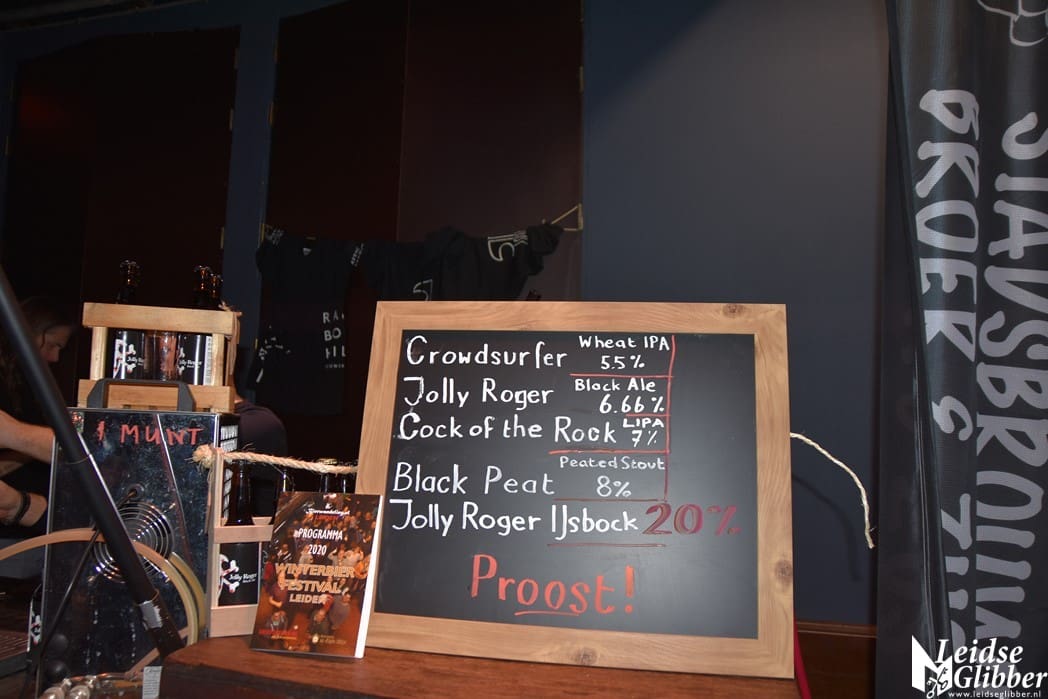 Crowdsurfer Wheat IPA 5.5%
Jolly Roger Black Ale 6.66%
Cock of the Rock LIPA 7%
Black Peat Peated Stout 8%
Jolly Roger IJsbock 20%
Proost!
1 MUNT
Jolly Roger
Jolly Roger
Jolly Roger
PROGRAMMA
2020
WINTERBIER
FESTIVAL
LEIDEN
BROEK &
Leidse
Glibber
www.leidseglibber.nl